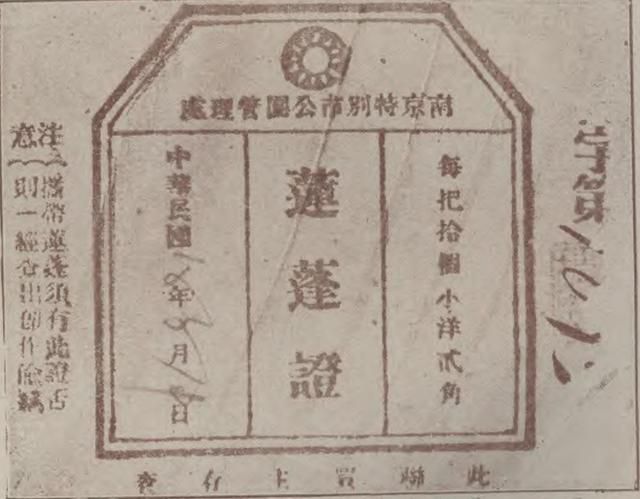 南京特別市公園管理處
每把拾個小洋貳角
蓮蓬證
中華民國 年 月 日
注意
攜帶蓮蓬須有此證否
則一經查出即作偷竊
此聯買主存查